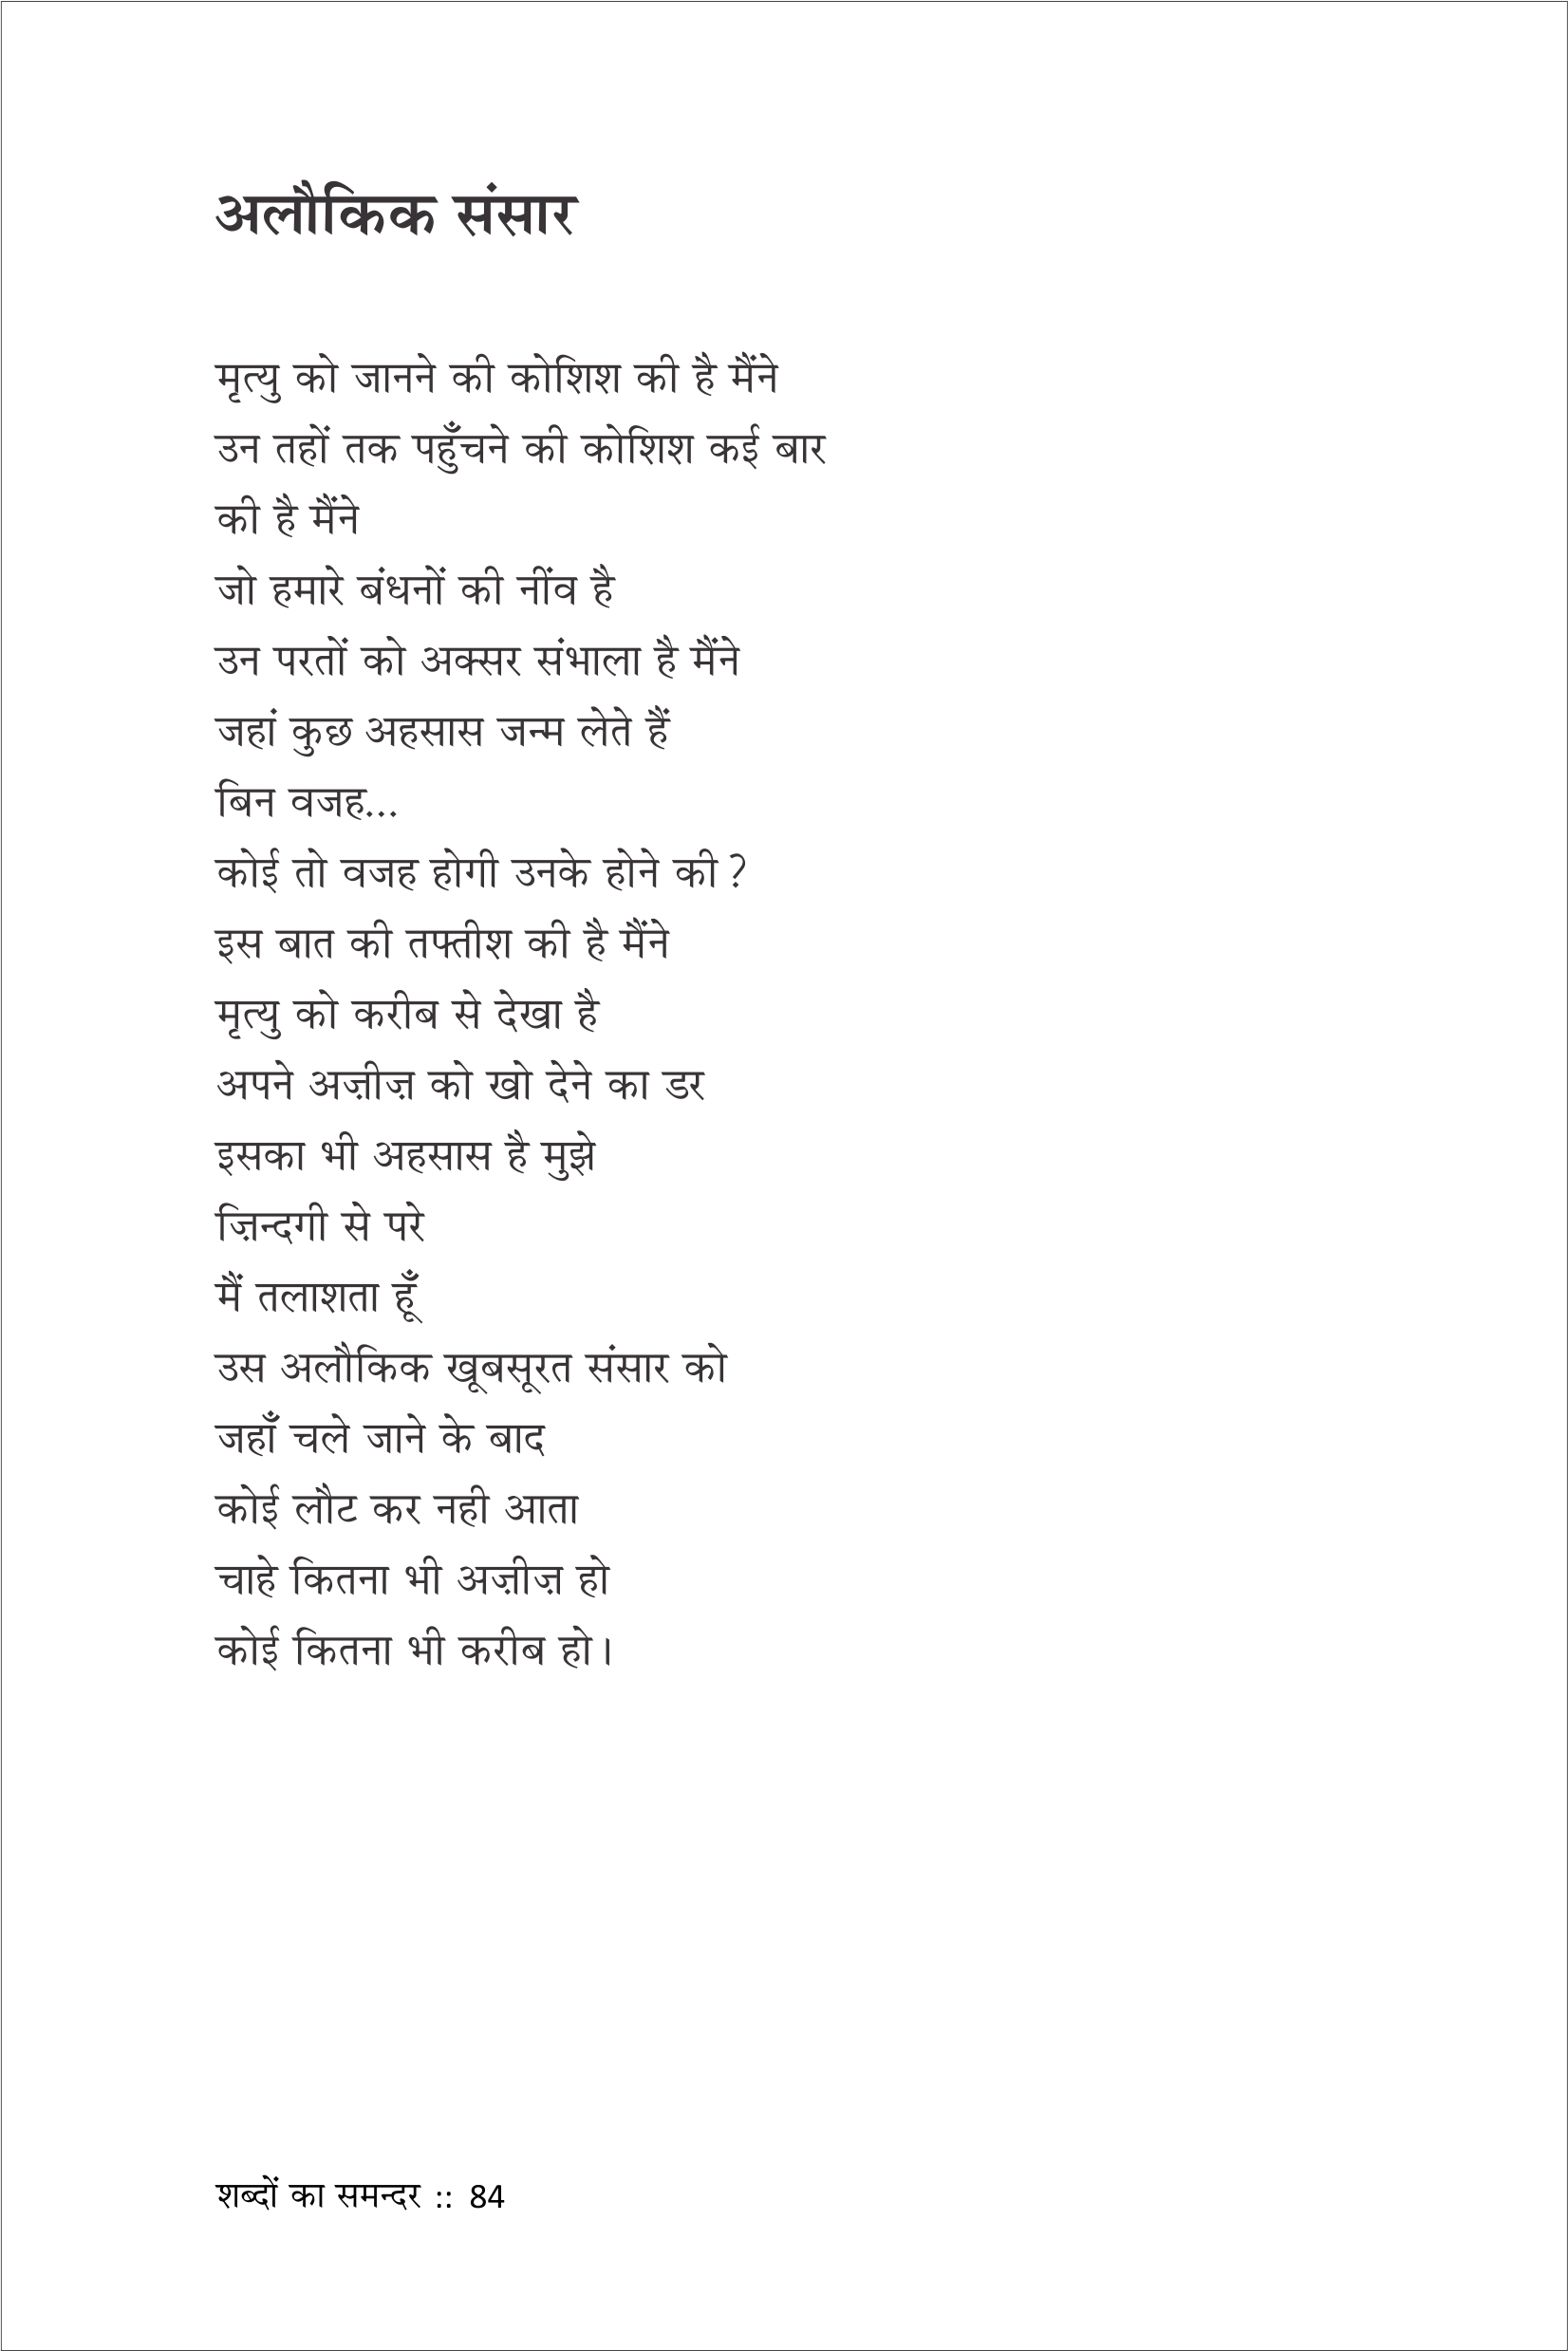 अलौकिक संसार
मृत्यु को जानने की कोशिश की है मैंने
उन तहों तक पहुँचने की कोशिश कई बार
की है मैंने
जो हमारे बंधनों की नींव है
उन परतों को अक्सर संभाला है मैंने
जहां कुछ अहसास जन्म लेते हैं
बिन वजह...
कोई तो वजह होगी उनके होने की ?
इस बात की तफ्तीश की है मैंने
मृत्यु को करीब से देखा है
अपने अज़ीज़ को खो देने का डर
इसका भी अहसास है मुझे
ज़िन्दगी से परे
मैं तलाशता हूँ
उस अलौकिक खूबसूरत संसार को
जहाँ चले जाने के बाद
कोई लौट कर नही आता
चाहे कितना भी अज़ीज़ हो
कोई कितना भी करीब हो।
शब्दों का समन्दर :: 84